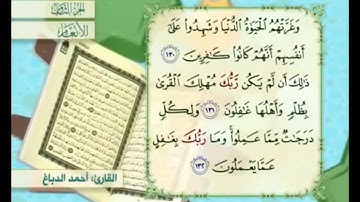 الجزء الثامن
الأنعام
وَغَرَّتْهُمُ الْحَيَوٰةُ الدُّنْيَا وَشَهِدُوا عَلَىٰ
أَنفُسِهِمْ أَنَّهُمْ كَانُوا كَٰفِرِينَ ١٣٠
ذَٰلِكَ أَن لَّمْ يَكُن رَّبُّكَ مُهْلِكَ الْقُرَىٰ
بِظُلْمٍ وَأَهْلُهَا غَٰفِلُونَ ١٣١ وَلِكُلٍّ
دَرَجَٰتٌ مِّمَّا عَمِلُوا وَمَا رَبُّكَ بِغَٰفِلٍ
عَمَّا يَعْمَلُونَ ١٣٢
القارئ: أحمد الدباغ